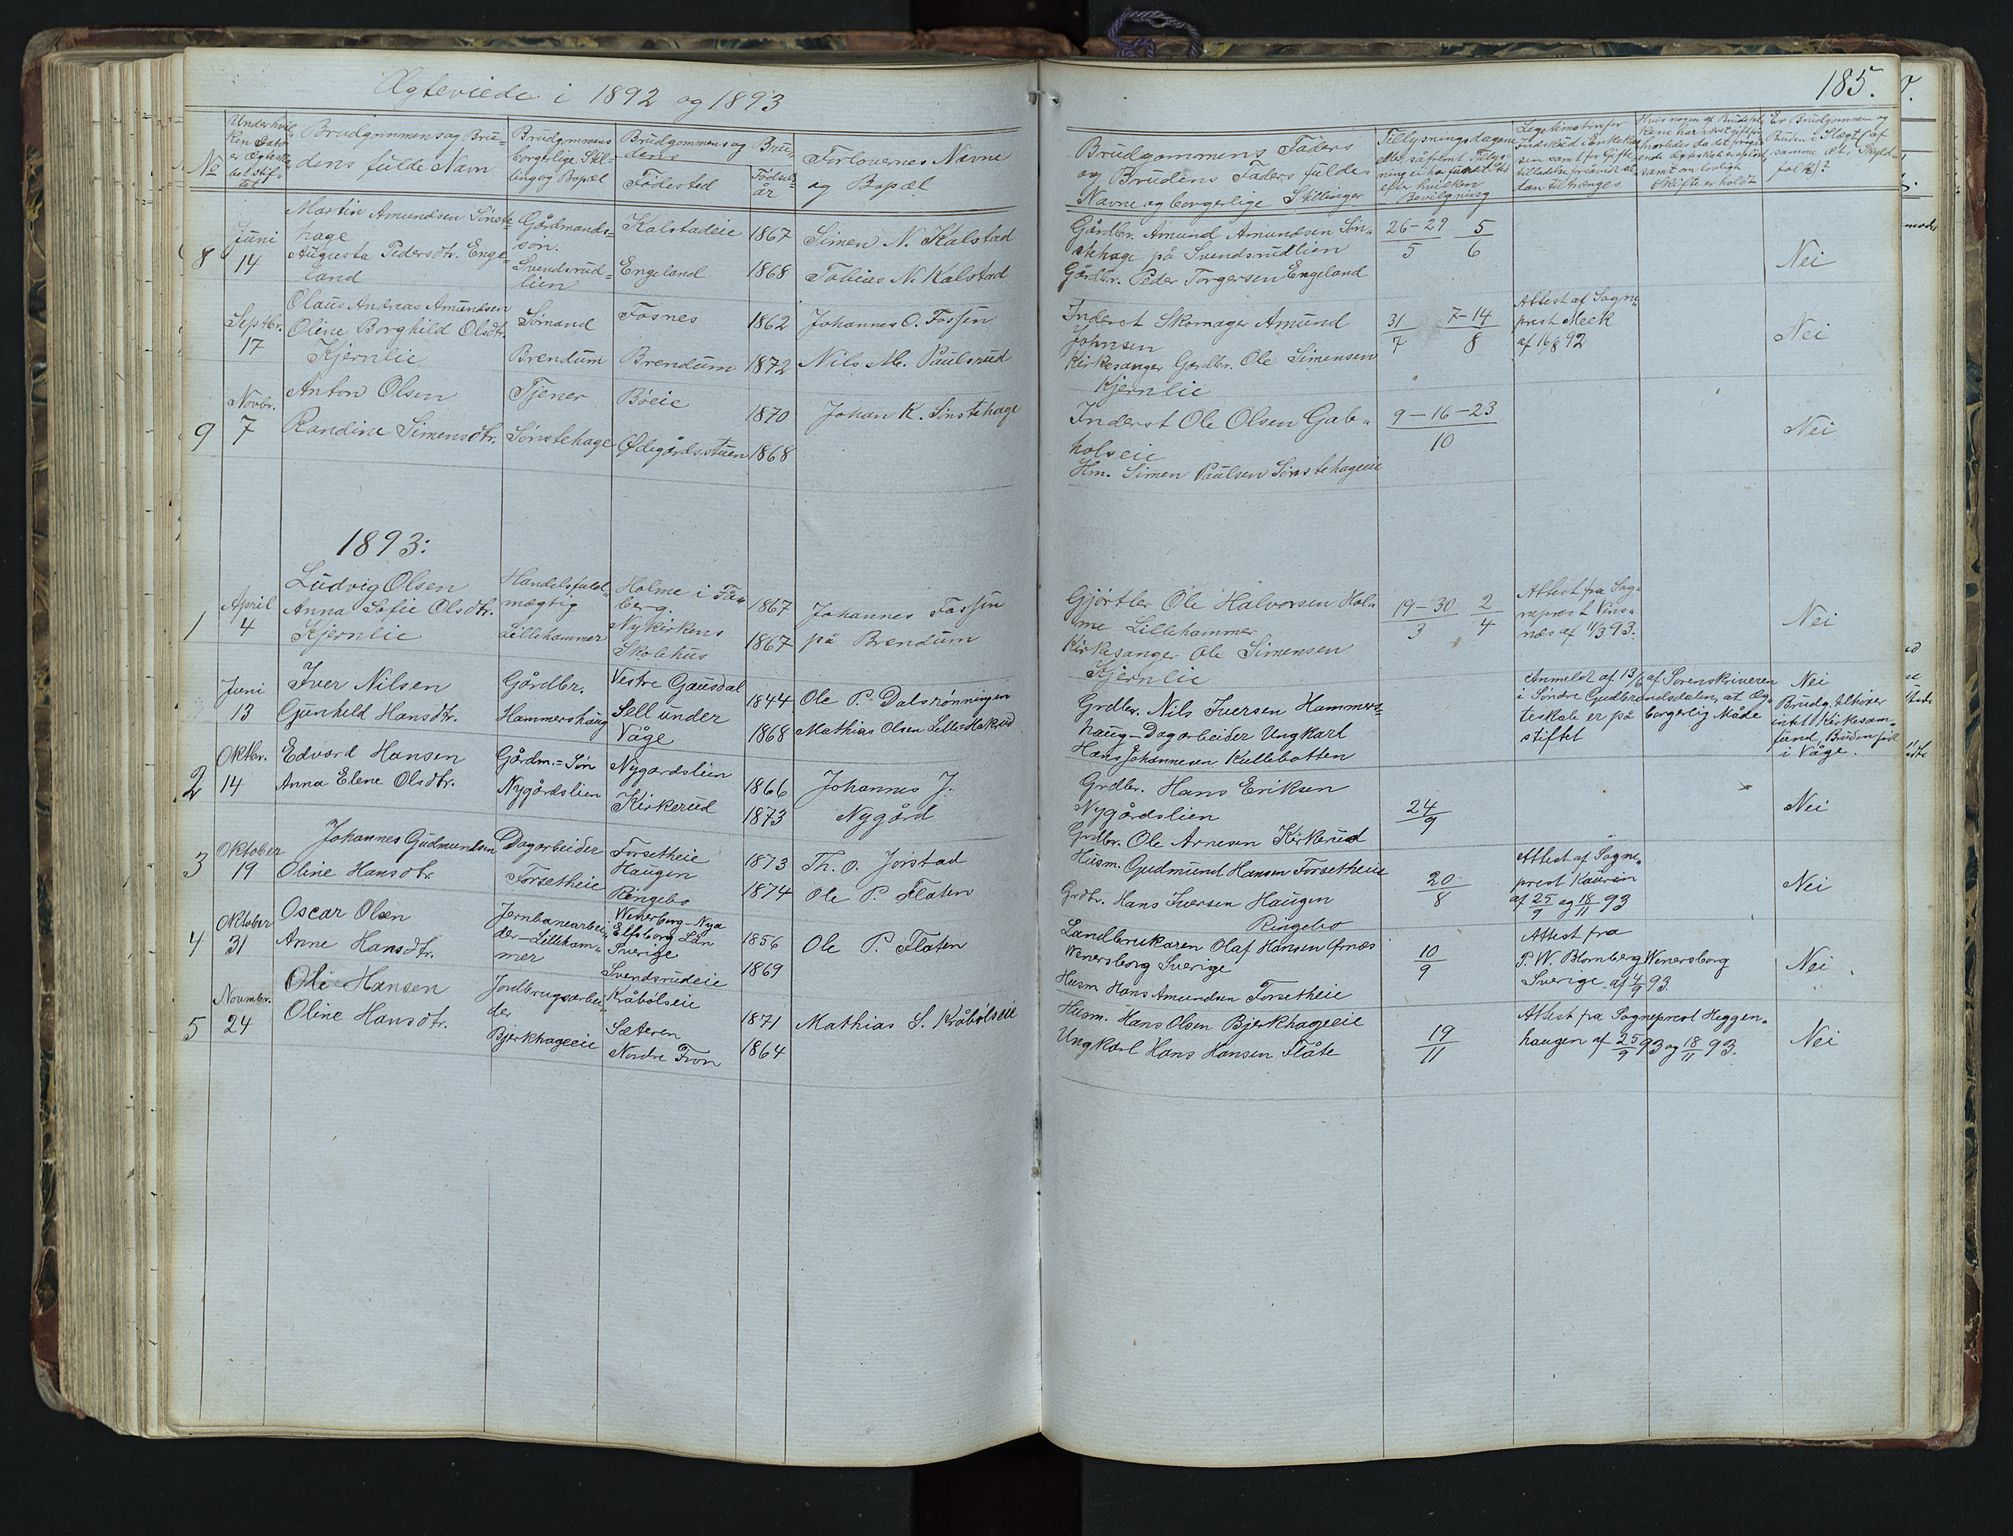 Ægteviede i 1892 og 1893
185.
No
Under hvil-
ken Dato
er Ægteska-
bet stif-
tet
Brudgommens og Bru-
dens fulde Navn
Brudgommens
borgerlige Stil-
ling og Bopæl
Brudgommens og Bru-
dens
Fødested
Fødsels-
år
Forlovernes Navne
og Bopæl
Brudgommens Faders
og Brudens Faders fulde
Navne og borgerlige Stillinger
8
Juni
14
Martin Amundsen Sønste-
hage
Augusta Pedersdtr. Enge-
land
Gårdmands-
søn.
Svendsrud-
lien
Kalstadeie
Engeland
1867
1868
Simen N. Kalstad
Tobias N. Kalstad
Gårdbr. Amund Amundsen Søn-
stehage på Svendsrudlien
Gårdbr. Peder Torgersen Engeland
26-29 5
5 6
Nei
Septbr.
17
Olaus Andreas Amundsen
Oline Borghild Olsdtr.
Kjernlie
Sømand
Brendum
Fosnes
Brendum
1862
1872
Johannes O. Fossen
Nils M. Paulsrud
Inderst Skomager Amund
Johnsen
Kirkesanger Gårdbr. Ole Simensen
Kjernlie
31 7-14
7 8
Attest af Sogne-
prest Meek
af 16/8 92
Nei
9
Novbr.
7
Anton Olsen
Randine Simensdtr.
Tjener
Sønstehage
Bøeie
Ødegårdsstuen
1870
1868
Johan K. Sønstehage
Inderst Ole Olsen Gab-
holseie
Hm. Simen Paulsen Sønstehageeie
9-16-23
10
Nei
1893:
1
April
4
Ludvig Olsen
Anna Sofie Olsdtr.
Kjernlie
Handelsfuld-
mægtig
Lillehammer
Holme i Få-
berg.
Nykirkens
Skolehus
1867
1867
Johannes Fossen
på Brendum
Gjørtler Ole Halvorsen Hol-
me Lillehammer
Kirkesanger Ole Simensen
Kjernlie
19-30 2
3 4
Attest fra Sog-
neprest Vins-
næs af 11/3 93.
Nei
Juni
13
Iver Nilsen
Gunhild Hansdtr.
Gårdbr.
Hammershaug
Vestre Gausdal
Sell under
Våge
1844
1868
Ole P. Dalsrønningen
Mathias Olsen Lille-Hakrud
Grdbr. Nils Iversen Hammers-
haug - Dagarbeider Ungkarl
Hans Johannesen Kullebotten
Anmeldt af 13/6 af Sorenskriveren
i Søndre Gudbrandsdalen, at Æg-
teskab er på borgerlig Måde
stiftet
Nei
Brudg. tilhører
intet Kirkesam-
fund, Bruden
i Våge.
2
Oktbr.
14
Edvard Hansen
Anna Elene Olsdtr.
Gårdm.-Søn
Nygårdslien
Nygardslien
Kirkerud
1866
1873
Johannes J.
Nygård
Grdbr. Hans Eriksen
Nygårdslien
Grdbr. Ole Arnesen Kirkerud
24
9
Nei
3
Oktober
19
Johannes Gudmundsen
Oline Hansdtr.
Dagarbeider
Forsetheie
Forsetheie
Haugen
Ringebo
1873
1874
Th. O. Jørstad
Ole P. Flaten
Husm. Gudmund Hansen Forsetheie
Grdbr. Hans Iversen Haugen
Ringebo
20
8
Attest af Sogne-
prest Kaurin
af 25/9 og 18/11 93
Nei
4
Oktober
31
Oscar Olsen
Anne Hansdtr.
Jernbanearbei-
der-Lilleham-
mer
Wenerborg-Nya
Elfsborg Län
Sverige
Svendsrudeie
1856
1869
Ole P. Flaten
Landbrukaren Olaf Hansen Ørnæs
Wenersborg Sverige
Husm Hans Amundsen Forsetheie
10
9
Attest fra
P. W. Blomberg Wenersborg
Sverige. af 4/9 93.
Nei
5
Novmbr.
24
Ole Hansen
Oline Hansdtr.
Jordbrugsarbei-
der
Bjerkhageeie
Kråbølseie
Sæteren
Nordre Fron
1871
1864
Mathias S. Kråbølseie
Husm. Hans Olsen Bjerkhageeie
Ungkarl Hans Hansen Flåte
19
11
Attest fra Sogneprest Heggen-
haugen af 25/9 93 og 18/11 93.
Nei